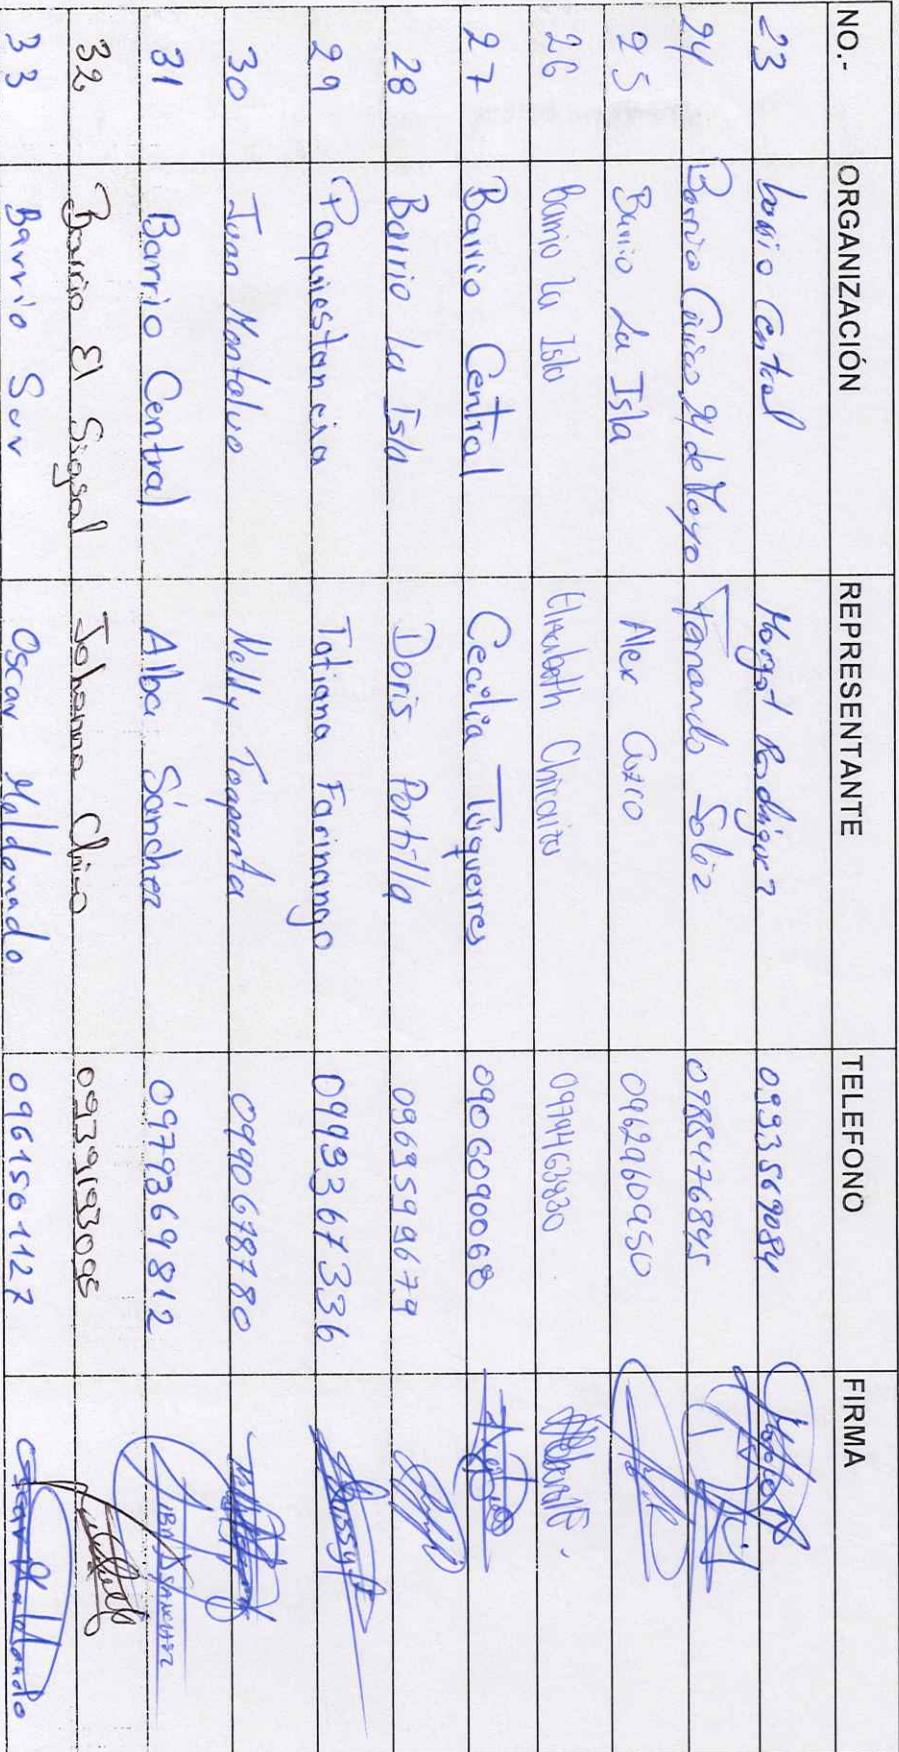 NO.- ORGANIZACIÓN REPRESENTANTE TELEFONO FIRMA
23 barrio Central Margot Rodríguez 0993569084
24 Barrio Cívico 24 de Mayo Fernando Soliz 0988476845
25 Barrio La Isla Alex 0962960950
26 Barrio la Isla Elizabeth 0979463830
27 Barrio Central Cecilia Túquerres 0906090068
28 Barrio La Isla Doris Portilla 0969599679
29 Paquiestancia Tatiana Farinango 0993367336
30 Juan Montalvo Nelly Toapanta 0990678780
31 Barrio Central Alba Sánchez 0979369812 ALBA SANCHEZ
32 Barrio El Sigsal Johanna 0939193095
33 Barrio Sur Oscar Maldonado 0961561127 Oscar Maldonado